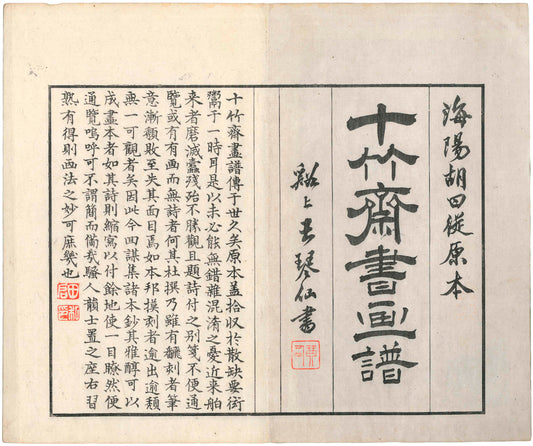 海陽胡曰從原本
十竹齋書画譜
谿上王琴仙書
十竹齋畫譜傳于世久矣原本蓋拾収於散缺要衒
鬻于一時耳是以未必能無錯雜混淆之憂近来舶
来者磨滅蠹残殆不勝觀且題詩付之别箋不便通
覧或有有画而無詩者何其杜撰乃雖有飜刻者筆
意漸頽敗至失其面目焉如本邦摸刻者逾出逾頽
無一可觀者矣因此今四謀集諸本鈔其雅醇可以
成畫本者如其詩則縮寫以付餘地使一目瞭然便
通覧嗚呼可不謂簡而備哉騷人韻士置之座右習
熟有得則画法之妙可庶幾也